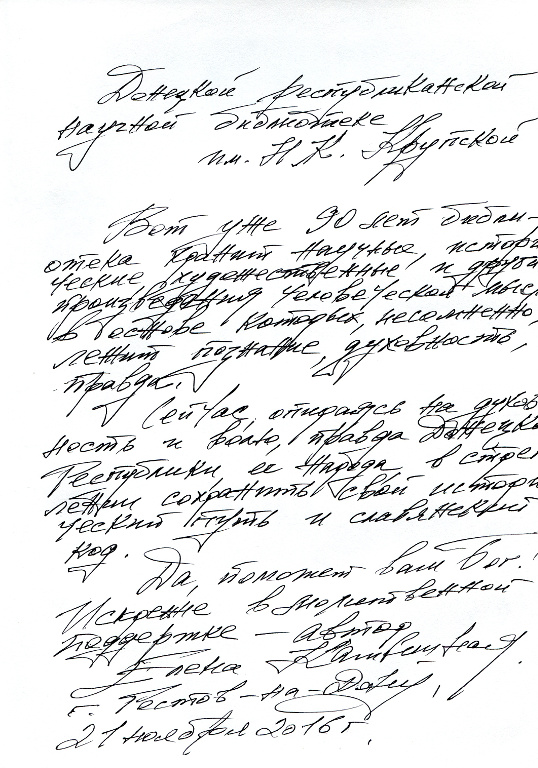 Донецкой республиканской
научной библиотеке
им. Н.К. Крупской
Вот уже 90 лет библи-
отека хранит научные, истори
ческие художественные и други
произведения человеческой мысл
в основе которых, несомненно,
лежит познание, духовность,
правда.
Сейчас, опираясь на духов
ность и волю, правда Донецко
Республики ее народа в стрем
лении сохранить свой истори
ческий путь и славянский
код.
Да, поможет вам Бог!
Искренне в молитвенной
поддержке – автор
Елена
г. Ростов-на-Дону,
21 ноября 2016 г.